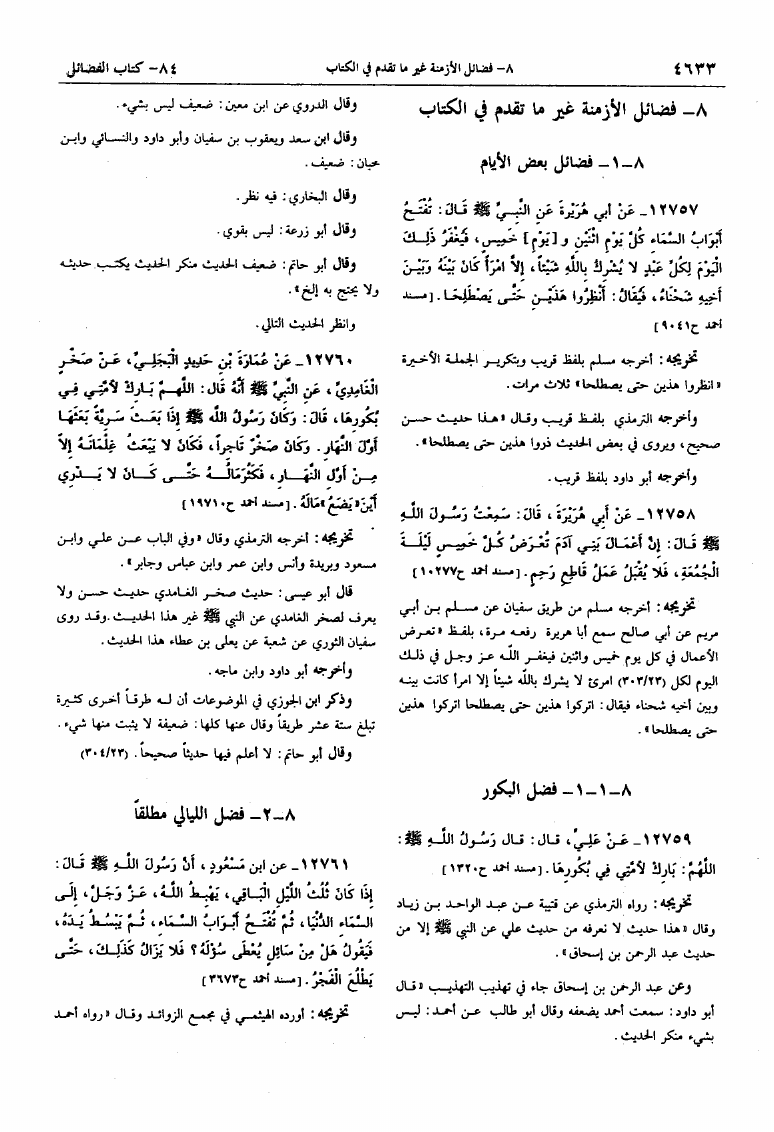 ٤٦٣٣
٨- فضائل الأزمنة غير ما تقدم في الكتاب
٨٤- كتاب الفضائل
٨- فضائل الأزمنة غير ما تقدم في الكتاب
٨-١- فضائل بعض الأيام
١٢٧٥٧- عَنْ أبي هُرَيْرةَ عَنِ النَّبِيِّ ﷺ قَالَ: تُفْتَحُ
أَبْوَابُ السَّمَاءِ كُلَّ يَوْمِ اثْنَيْنِ و [يَوْمِ] خَمِيسٍ، فَيُغْفَرُ ذَلِكَ
الْيَوْمَ لِكُلِّ عَبْدٍ لا يُشْرِكُ بِاللَّهِ شَيْئاً، إلاَّ امْرَأً كَانَ بَيْنَهُ وَبَيْنَ
أَخِيهِ شَحْنَاءُ، فَيُقَالُ: أَنْظِرُوا هَذَيْنِ حَتَّى يَصْطَلِحَا. [مسند
أحمد ح٩٠٤١]
تخريجه: أخرجه مسلم بلفظ قريب وبتكرير الجملة الأخيرة
«انظروا هذين حتى يصطلحا» ثلاث مرات.
وأخرجه الترمذي بلفظ قريب وقال «هذا حديث حسن
صحيح، ويروى في بعض الحديث ذروا هذين حتى يصطلحا».
وأخرجه أبو داود بلفظ قريب.
١٢٧٥٨- عَنْ أَبِي هُرَيْرَةَ، قَالَ: سَمِعْتُ رَسُولَ اللَّهِ
ﷺ قَالَ: إِنَّ أَعْمَالَ بَنِي آدَمَ تُعْرَضُ كُلَّ خَمِيسٍ لَيْلَةَ
الْجُمُعَةِ، فَلا يُقْبَلُ عَمَلُ قَاطِعِ رَحِمٍ. [مسند أحمد ح١٠٢٧٧]
تخريجه: أخرجه مسلم من طريق سفيان عن مسلم بن أبي
مريم عن أبي صالح سمع أبا هريرة رفعه مرة، بلفظ «تعرض
الأعمال في كل يوم خميس واثنين فيغفر الله عز وجل في ذلك
اليوم لكل (٣٠٣/٢٣) امرئ لا يشرك بالله شيئاً إلا امرأ كانت بينه
وبين أخيه شحناء فيقال: اتركوا هذين حتى يصطلحا اتركوا هذين
حتى يصطلحا».
٨-١-١- فضل البكور
١٢٧٥٩- عَنْ عَلِيٍّ، قال: قال رَسُولُ اللَّهِ ﷺ:
اللَّهُمَّ: بَارِكْ لأُمَّتِي فِي بُكُورِهَا. [مسند أحمد ح١٣٢٠]
تخريجه: رواه الترمذي عن قتيبة عن عبد الواحد بن زياد
وقال «هذا حديث لا نعرفه من حديث علي عن النبي ﷺ إلا من
حديث عبد الرحمن بن إسحاق».
وعن عبد الرحمن بن إسحاق جاء في تهذيب التهذيب «قال
أبو داود: سمعت أحمد يضعفه وقال أبو طالب عن أحمد: ليس
بشيء منكر الحديث.
وقال الدروي عن ابن معين: ضعيف ليس بشيء.
وقال ابن سعد ويعقوب بن سفيان وأبو داود والنسائي وابن
حبان: ضعيف.
وقال البخاري: فيه نظر.
وقال أبو زرعة: ليس بقوي.
وقال أبو حاتم: ضعيف الحديث منكر الحديث يكتب حديثه
ولا يحتج به إلخ».
وانظر الحديث التالي.
١٢٧٦٠- عَنْ عُمَارَةَ بْنِ حَدِيدٍ الْبَجَلِيِّ، عَنْ صَخْرٍ
الْغَامِدِيِّ، عَنِ النَّبِيِّ ﷺ أَنَّهُ قَال: اللَّهُمَّ بَارِكْ لأُمَّتِي فِي
بُكُورِهَا، قَالَ: وَكَانَ رَسُولُ الله ﷺ إِذَا بَعَثَ سَرِيَّةً بَعَثَهَا
أَوَّلَ النَّهَارِ. وَكَانَ صَخْرٌ تَاجِراً، فَكَانَ لا يَبْعَثُ غِلْمَانَهُ إِلاَّ
مِنْ أَوَّلِ النَّهَارِ، فَكَثُرَ مَالُهُ حَتَّى كَانَ لا يَدْرِي
أَيْنَ «يَضَعُ» مَالَهُ. [مسند أحمد ح١٩٧١٠]
تخريجه: أخرجه الترمذي وقال «وفي الباب عن علي وابن
مسعود وبريدة وأنس وابن عمر وابن عباس وجابر».
قال أبو عيسى: حديث صخر الغامدي حديث حسن ولا
يعرف لصخر الغامدي عن النبي ﷺ غير هذا الحديث.وقد روى
سفيان الثوري عن شعبة عن يعلى بن عطاء هذا الحديث.
وأخرجه أبو داود وابن ماجه.
وذكر ابن الجوزي في الموضوعات أن له طرقاً أخرى كثيرة
تبلغ ستة عشر طريقاً وقال عنها كلها: ضعيفة لا يثبت منها شيء.
وقال أبو حاتم: لا أعلم فيها حديثاً صحيحاً. (٣٠٤/٢٣)
٨-٢- فضل الليالي مطلقاً
١٢٧٦١- عن ابن مَسْعُودٍ، أنَّ رَسُولَ اللَّهِ ﷺ قَالَ:
إِذَا كَانَ ثُلُثُ اللَّيْلِ الْبَاقِي، يَهْبِطُ اللَّهُ، عَزَّ وَجَلَّ، إِلَى
السَّمَاءِ الدُّنْيَا، ثُمَّ تُفْتَحُ أَبْوَابُ السَّمَاءِ، ثُمَّ يَبْسُطُ يَدَهُ،
فَيَقُولُ هَلْ مِنْ سَائِلٍ يُعْطَى سُؤْلَهُ؟ فَلا يَزَالُ كَذَلِكَ، حَتَّى
يَطْلُعَ الْفَجْرُ. [مسند أحمد ح٣٦٧٣]
تخريجه: أورده الهيثمي في مجمع الزوائد وقال «رواه أحمد